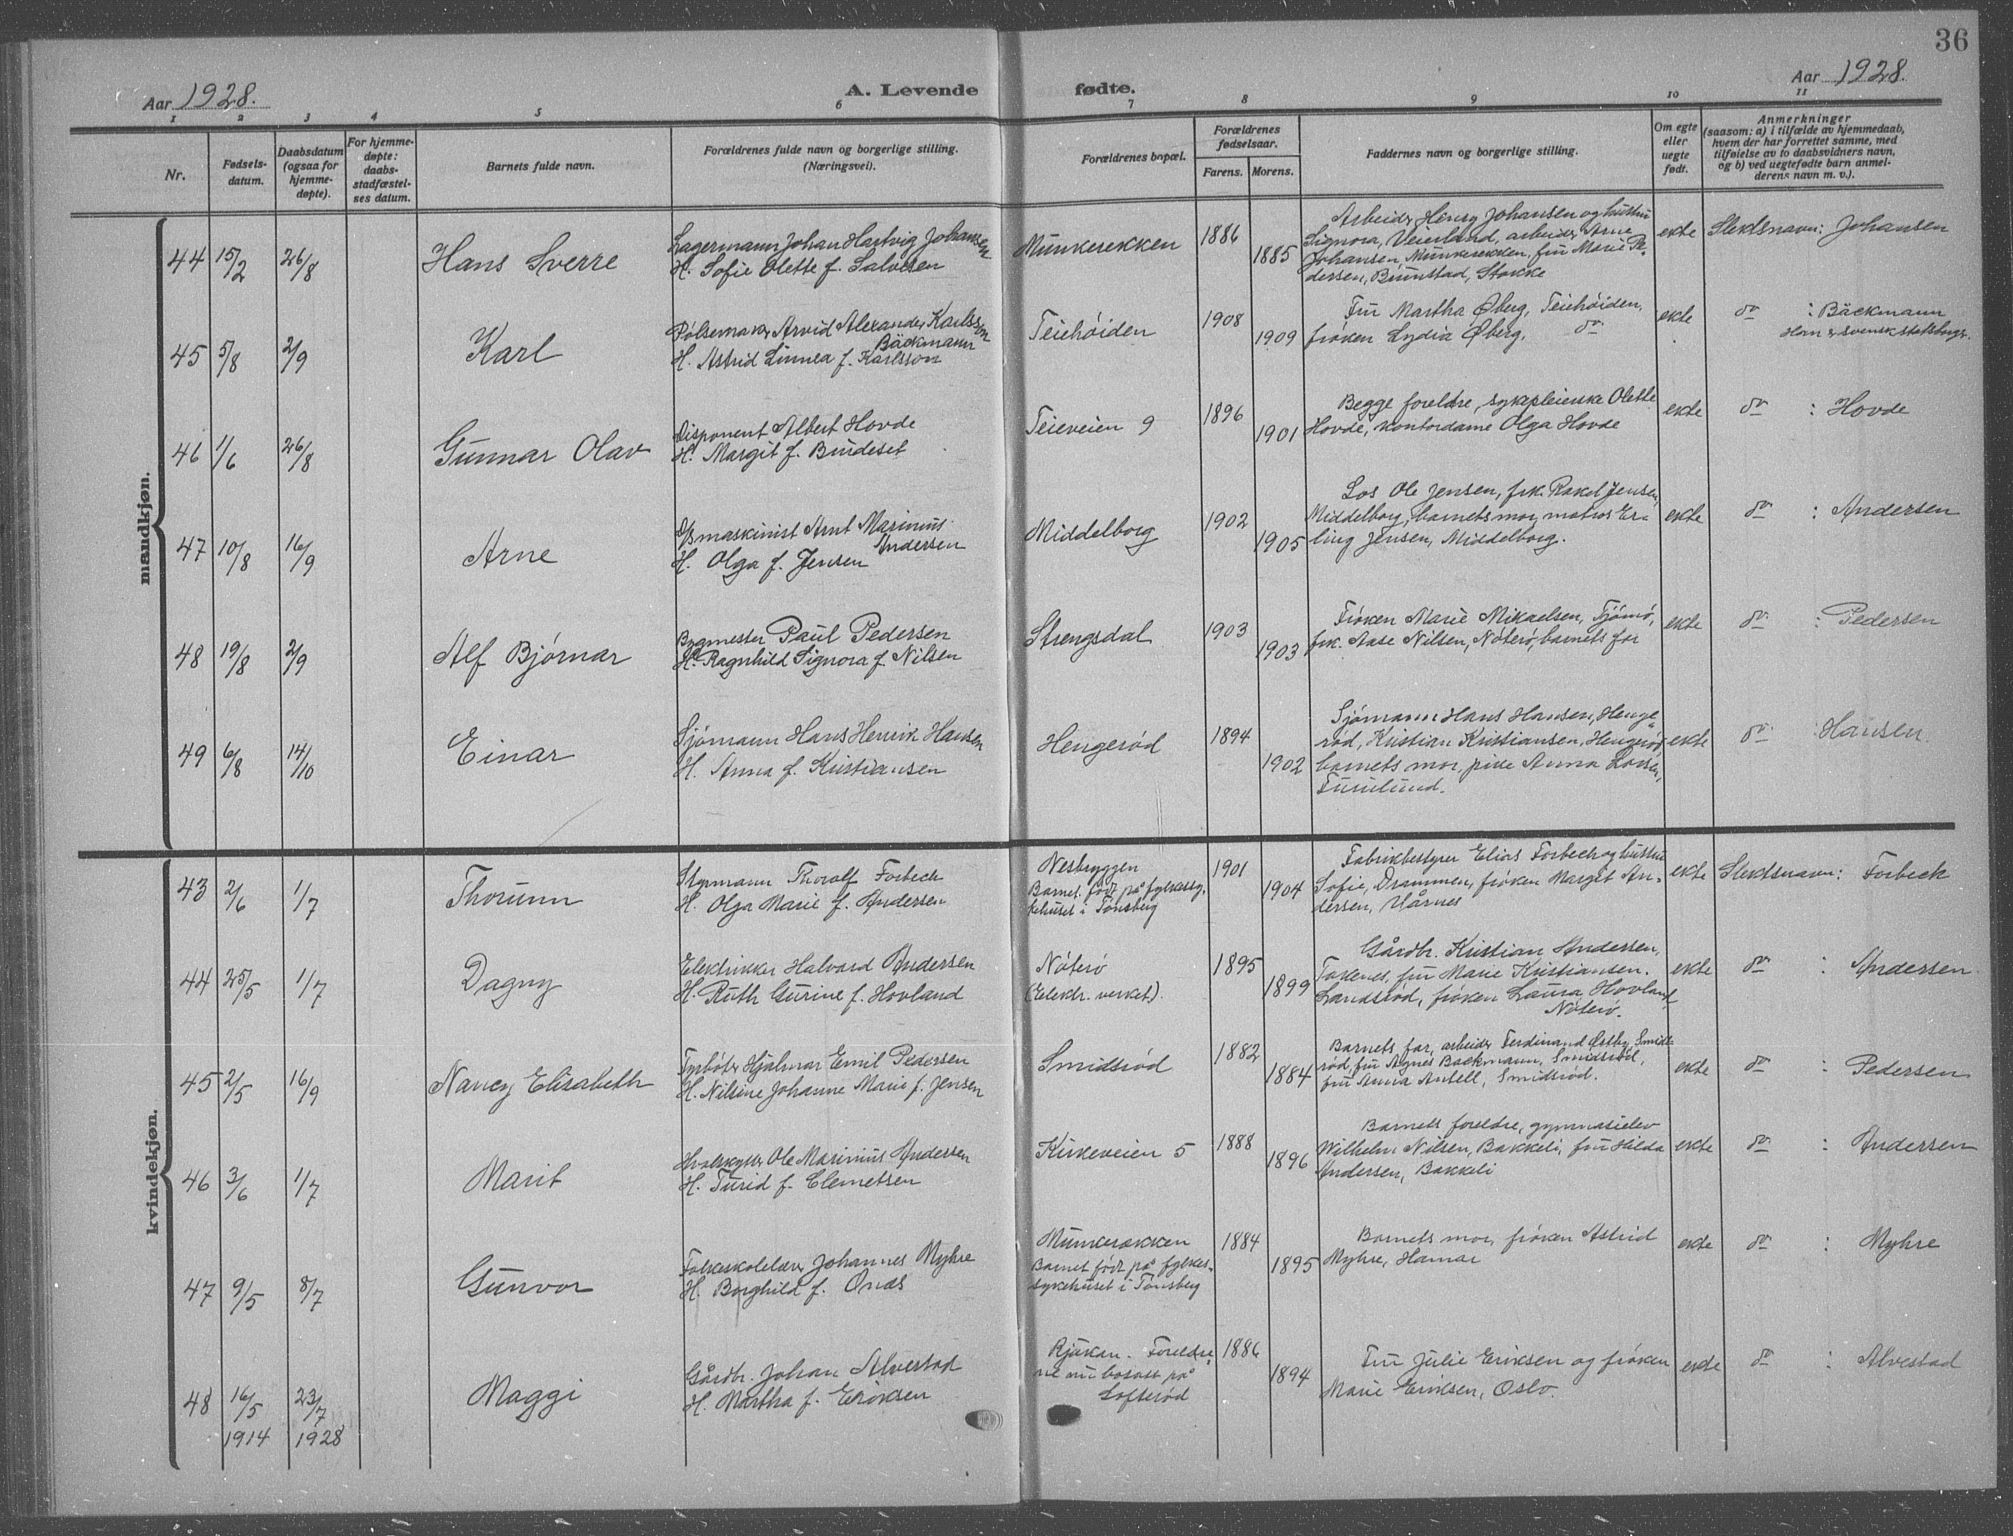 36
Aar 1928.
A. Levende fødte.
Aar 1928.
1 2 3 4 5 6 7 8 9 10 11
Nr.
Fødsels-
datum.
Daabsdatum
(ogsaa for
hjemme-
døpte).
For hjemme-
døpte:
daabs-
stadfæstel-
ses datum.
Barnets fulde navn.
Forældrenes fulde navn og borgerlige stilling.
(Næringsvei).
Forældrenes bopæl.
Forældrenes
fødselsaar.
Farens. Morens.
Faddernes navn og borgerlige stilling.
Om egte
eller
uegte
født.
Anmerkninger
(saasom: a) i tilfælde av hjemmedaab,
hvem der har forrettet samme, med
tilføielse av to daabsvidners navn,
og b) ved uegtefødte barn anmel-
derens navn m. v.).
mandkjøn.
44 15/2 26/8 Hans Sverre
Lagermann Johan Hartvig Johansen
H. Sofie Olette f. Salvesen
Munkerekken
1886
1885
Arbeider Henry Johansen og hustru
Signora, Veierland, arbeider Arne
Johansen, Munkerekken, fru Marie Pe-
dersen, Brunstad, Stokke
ekte
Slektsnavn: Johansen
45 5/8 2/9 Karl
Pølsemaker Arvid Alexander Karlsson
Bäckmann
H. Astrid Linnea f. Karlsson
Teiehøiden
1908
1909
Fru Martha Øberg, Teiehøiden,
frøken Lydia Øberg, do
ekte
do : Bäckmann
Han er svensk statsborgr.
46 1/6 26/8 Gunnar Olav
Disponent Albert Hovde
H. Margit f. Bindeset
Teieveien 9
1896
1901
Begge foreldre, sykepleierske Olette
Hovde, kontordame Olga Hovde
ekte
do : Hovde
47 10/8 16/9 Arne
D/smaskinist Arnt Marinius
Andersen
H. Olga f. Jensen
Middelborg
1902
1905
Los Ole Jensen, frk. Rakel Jensen,
Middelborg, barnets mor, matros Er-
ling Jensen, Middelborg.
ekte
do : Andersen
48 19/8 2/9 Alf Bjørnar
Bygmester Paul Pedersen
H. Ragnhild Signora f. Nilsen
Strengsdal
1903
1903
Frøken Marie Mikaelsen, Tjømø,
frk. Aase Nilsen, Nøterø, barnets far
ekte
do : Pedersen
49 6/8 14/10 Einar
Sjømann Hans Henrik Hansen
H. Anna f. Kristiansen
Hengerød
1894
1902
Sjømann Hans Hansen, Henge-
rød, Kristian Kristiansen, Hengerød,
barnets mor, pike Anna Larsen,
Furulund.
ekte
do : Hansen
kvindekjøn.
43 2/6 1/7 Thorunn
Styrmann Thoralf Forbech
H. Olga Marie f. Andersen
Nesbryggen
Barnet født på fylkessy-
kehuset i Tønsberg
1901
1904
Fabrikbestyrer Elias Forbech og hustru
Sofie, Drammen, frøken Margit An-
dersen, Vårnes
ekte
Slektsnavn: Forbech
44 25/5 1/7 Dagny
Elektriker Halvard Andersen
H. Ruth Gurine f. Hovland
Nøterø
(Elektr. verket).
1895
1899
Gårdbr. Kristian Andersen,
fru Marie Kristiansen,
frøken Laura Hovland,
Nøterø.
ekte
do : Andersen
45 2/5 16/9 Nancy Elisabeth
Fyrbøter Hjalmar Emil Pedersen
H. Nilsine Johanne Marie f. Jensen
Smidsrød
1882
1884
Barnets far, arbeider Ferdinand Østby, Smids-
rød, fru Agnes Backmann, Smidsrød,
fru Anna Antell, Smidsrød.
ekte
do : Pedersen
46 3/6 1/7 Marit
Hvalskytter Ole Marinius Andersen
H. Turid f. Clemetsen
Kirkeveien 5
1888
1896
Barnets foreldre, gymnasielev
Wilhelm Nilsen, Bakkeli, fru Hilda
Andersen, Bakkeli
ekte
do : Andersen
47 9/5 8/7 Gunvor
Folkeskolelærer Johannes Myhre
H. Borghild f. Onås
Munkerekken
Barnet født på fylkes-
sykehuset i Tønsberg
1884
1895
Barnets mor, frøken Astrid
Myhre, Hamar
ekte
do : Myhre
48 16/5 1914 23/7 1928 Maggi
Gårdbr. Johan Alvestad
H. Martha f. Eriksen
Rjukan. Foreldre-
ne nu bosatt på
Lofterød
1886
1894
Fru Julie Eriksen og frøken
Marie Eriksen, Oslo.
ekte
do : Alvestad